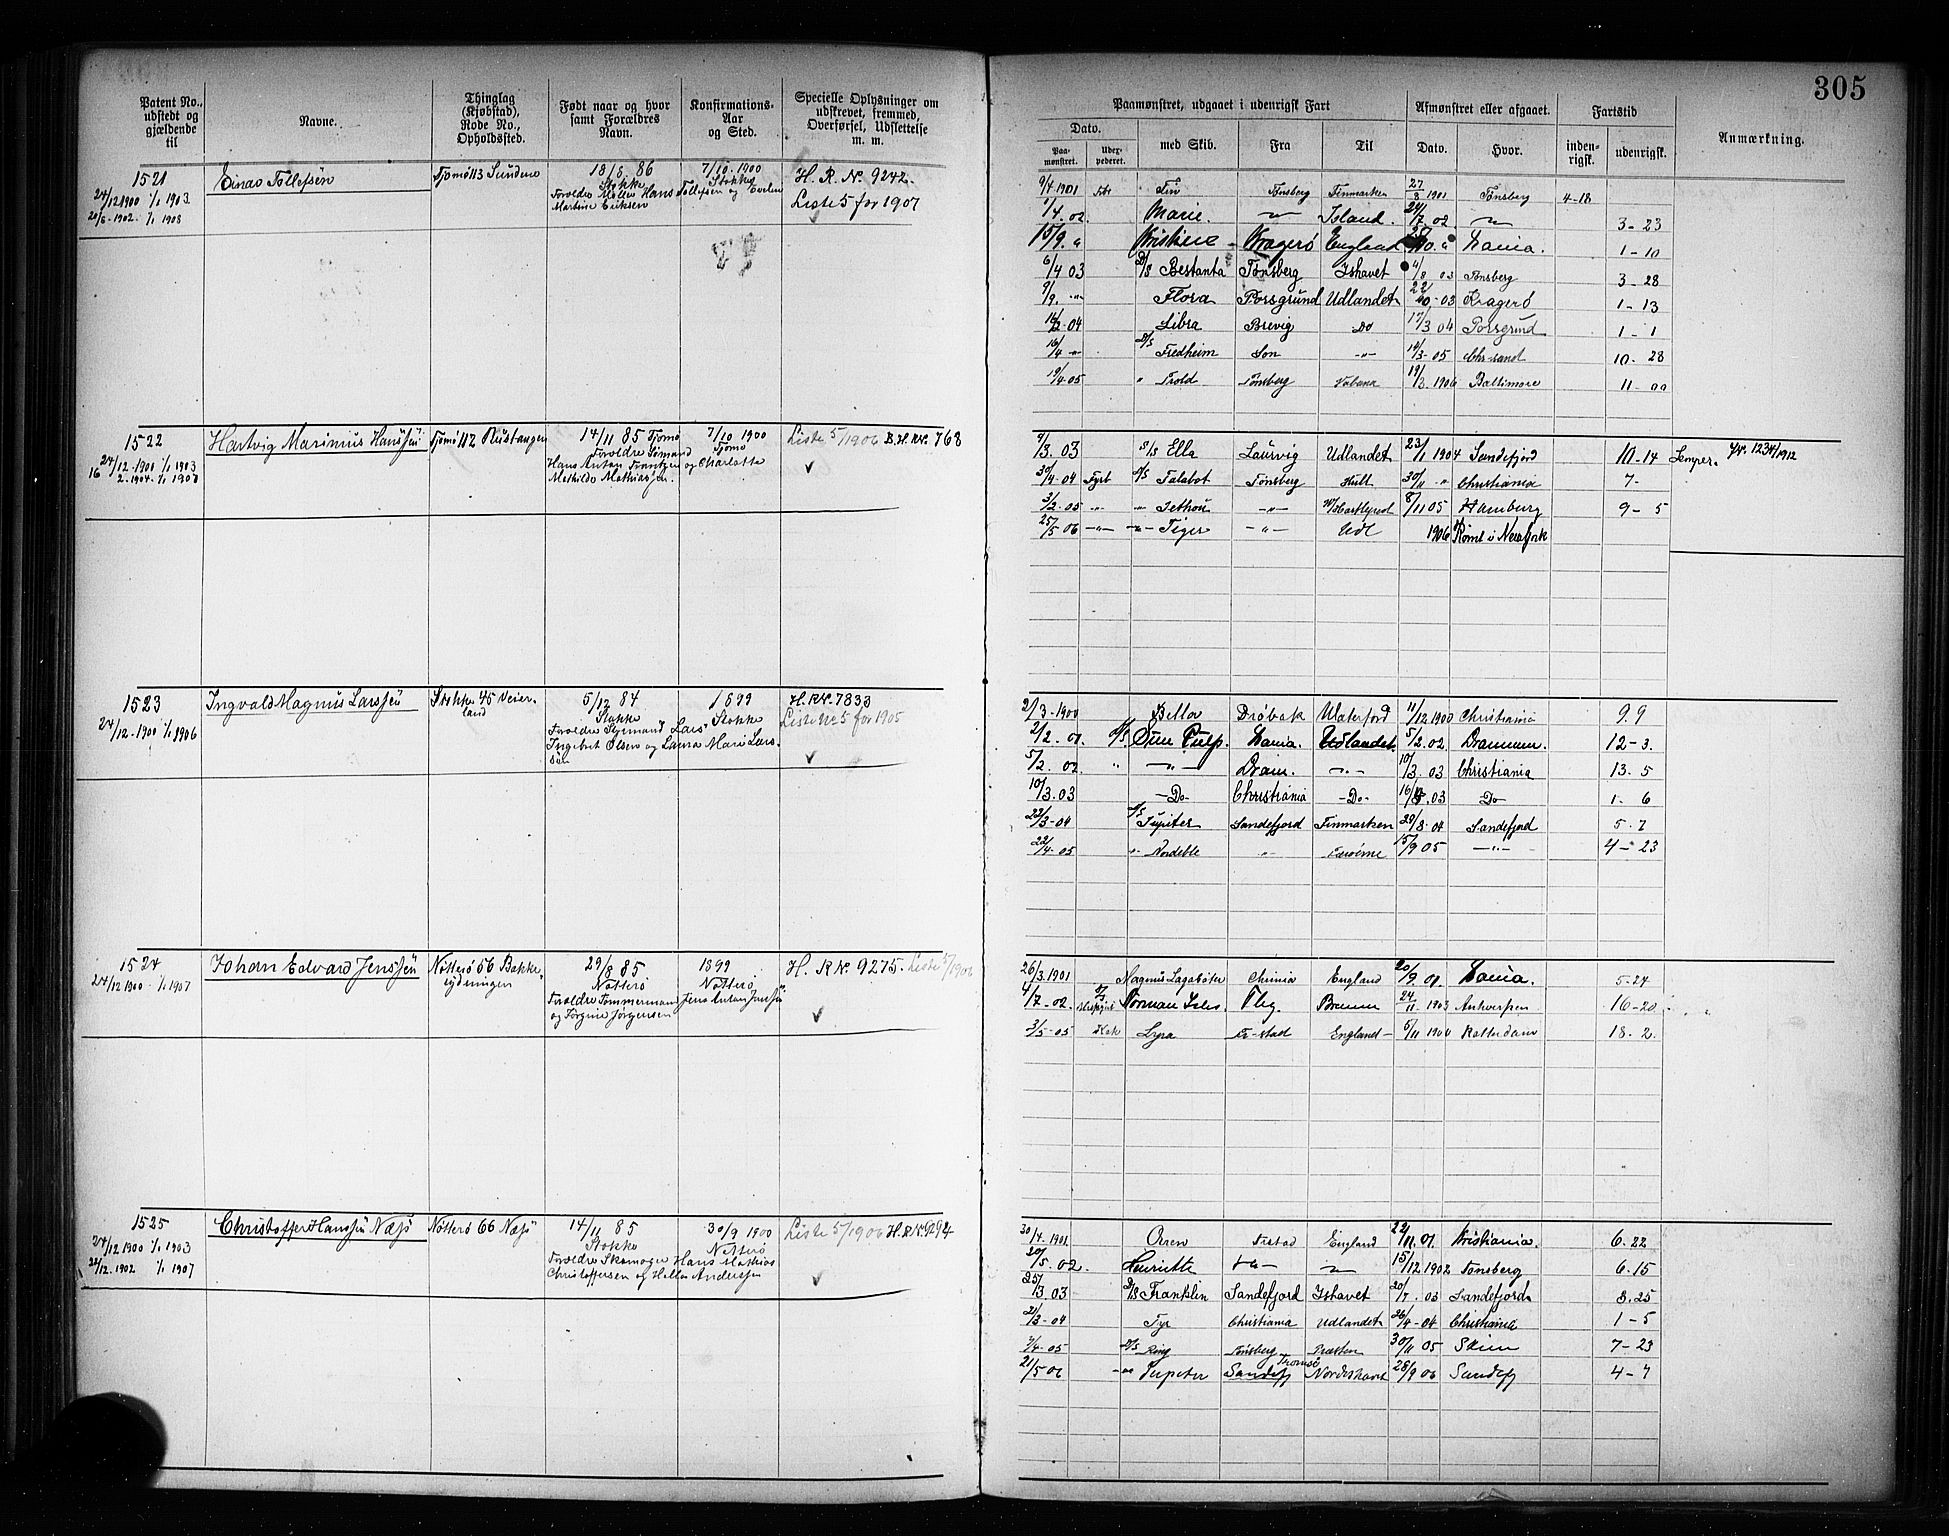 305
Patent No., udstedt og gjældende til
Navne.
Thinglag (Kjøbstad), Rode No., Opholdssted.
Født naar og hvor samt Forældres Navn.
Konfirmations-Aar og Sted.
Specielle Oplysninger om udskrevet, fremmed, Overførsel, Udslettelse m. m.
Paamønstret, udgaaet i udenrigsk Fart
Afmønstret eller afgaaet.
Fartstid
Anmærkning.
Dato.
Paamønstret.
Udexpederet.
med Skib.
Fra
Til
Dato.
Hvor.
indenrigsk.
udenrigsk.
1521
24/12 1900 1/1 1903
20/6-1902. 1/1 1908
Einar Tollefsen
Tjømø 113 Sundene
18/8. 86
Stokke
Martine Eriksen
7/10. 1900
Stokke
H. R. N. 9242.
Liste 5 for 1907
9/4 1901 Fin Tønsberg Finmarken 27/8 1901 Tønsberg 4-18
1/4. 02. Marie. -"- Island. 24/7 02. -"- 3-23
15/9. " Kristine - Kragerø England Lania. 1-10
6/4 03 D/S Bestanta Tønsberg Ishavet 4/8 03 Tønsberg 3-28
9/9. -"- Flora Porsgrund Udlandet 22/10-03 Kragerø 1-13
Libra Brevig Do 17/3 04 Porsgrund 1-1
16/4 -"- D/S Fredheim Son -"- 14/3-05 Chr-sand 10-28
19/4-05 " Trold Tønsberg 19/3. 1906 Baltimore 11-00
1522
24/12-1900 1/1 1903
16/2-1904. 1/1 1907
Hartvig Marinius Hanssen
Tjømø 112 Rustangen
14/11 85 Tjømø
Forældre Sømand
Hans Anton Frantzen og Charlotte
Mathilde Mathiassen.
7/10 1900
Tjømø
Liste 5/1906 B. H. RN. 768
4/3. 03 S/S Ella Laurvig Udlandet 23/1 1904 Sandefjord 10-14 Semper. Nr. 1234/1912
30/4-04 Fyrb S/S Talabot Tønsberg Hull 30/11 -"- Christiania 7-
3/2-05 -"- " Jethou -"- W/Hartlepool 8/11 05 Hamburg 9-5
25/5-06 -"- -"- Tiger -"- Udl 1906 Rømt i Newyork
1523
24/12-1900 1/1 1906
Ingvald Magnus Larssen
Stokke 45 Veierland
5/12 84
Stokke
Forældre Sømand Lars
Ingebret Olsen og Laura Marie Larssen
1899
Stokke
H. RN. 7833
Liste No 5 for 1905
2/3-1900 Bella Drøbak Waterford 11/12 1900 Christiania 9. 9
2/2. 01. Lania. Udlandet. 5/2. 02 Drammen. 12-3.
5/2. 02. " -"- Dram. -"- 10/3. 03 Christiania 13. 5
10/3.03 -Do- Christiania -Do- 03 Do 1-6
22/3-04 S/S Jupiter Sandefjord Finmarken 29/8-04 Sandefjord 5-7
22/4-05 " " 15/9 05 -"- 4-23
1524
24/12 1900. 1/1 1907
Johan Edvard Jenssen
Nøtterø 56 Bakke-
rydningen
29/8 85
Nøtterø
Forældre Tømmermand Jens Anton Janssen
og Jørgine Jørgensen
1899
Nøtterø
H. RN. 9275. Liste 5/1906
26/3. 1901 Magnus Lagabøter Chinia England 20/9. 01. Lania. 5-24
4/7-02. S/S Norman Isles. Tbg. Bremen 24/11-1903 Antwerpen 16-20
3/5-05 Kok Lyra Fr-stad England- 5/11 1906 Rotterdam 18-2.
1525
24/12 1900 1/1 1903
22/12. 1902 1/1 1907
Christoffer Hanssen Næss
Nøtterø 66 Næss
14/11 85
Stokke
Forældre Skomager Hans Mathias
Christoffersen og Helle Anderssen
30/9 1900
Nøtterø
Liste 5/1906 H. R. N. 9294
30/4. 1901. Orren Frstad England 22/11. 01. Kristiania. 6-22
20/5. 02. Henriette -"- -"- 15/12 1902 Tønsberg 6. 15
25/3 03 D/S Franklin Sandefjord Ishavet 20/7. 03 Sandefjord 3.25
21/3-04 Tyr Christiania Udlandet 26/4-04 Christiania 1-5
7/4-05 D/S Ring Tønsberg Præsten 30/11 05 Skien 7-23
21/5-06 -"- Jupiter Sandefj Tromsø Nordishavet 28/9 06 Sandefj 4-7